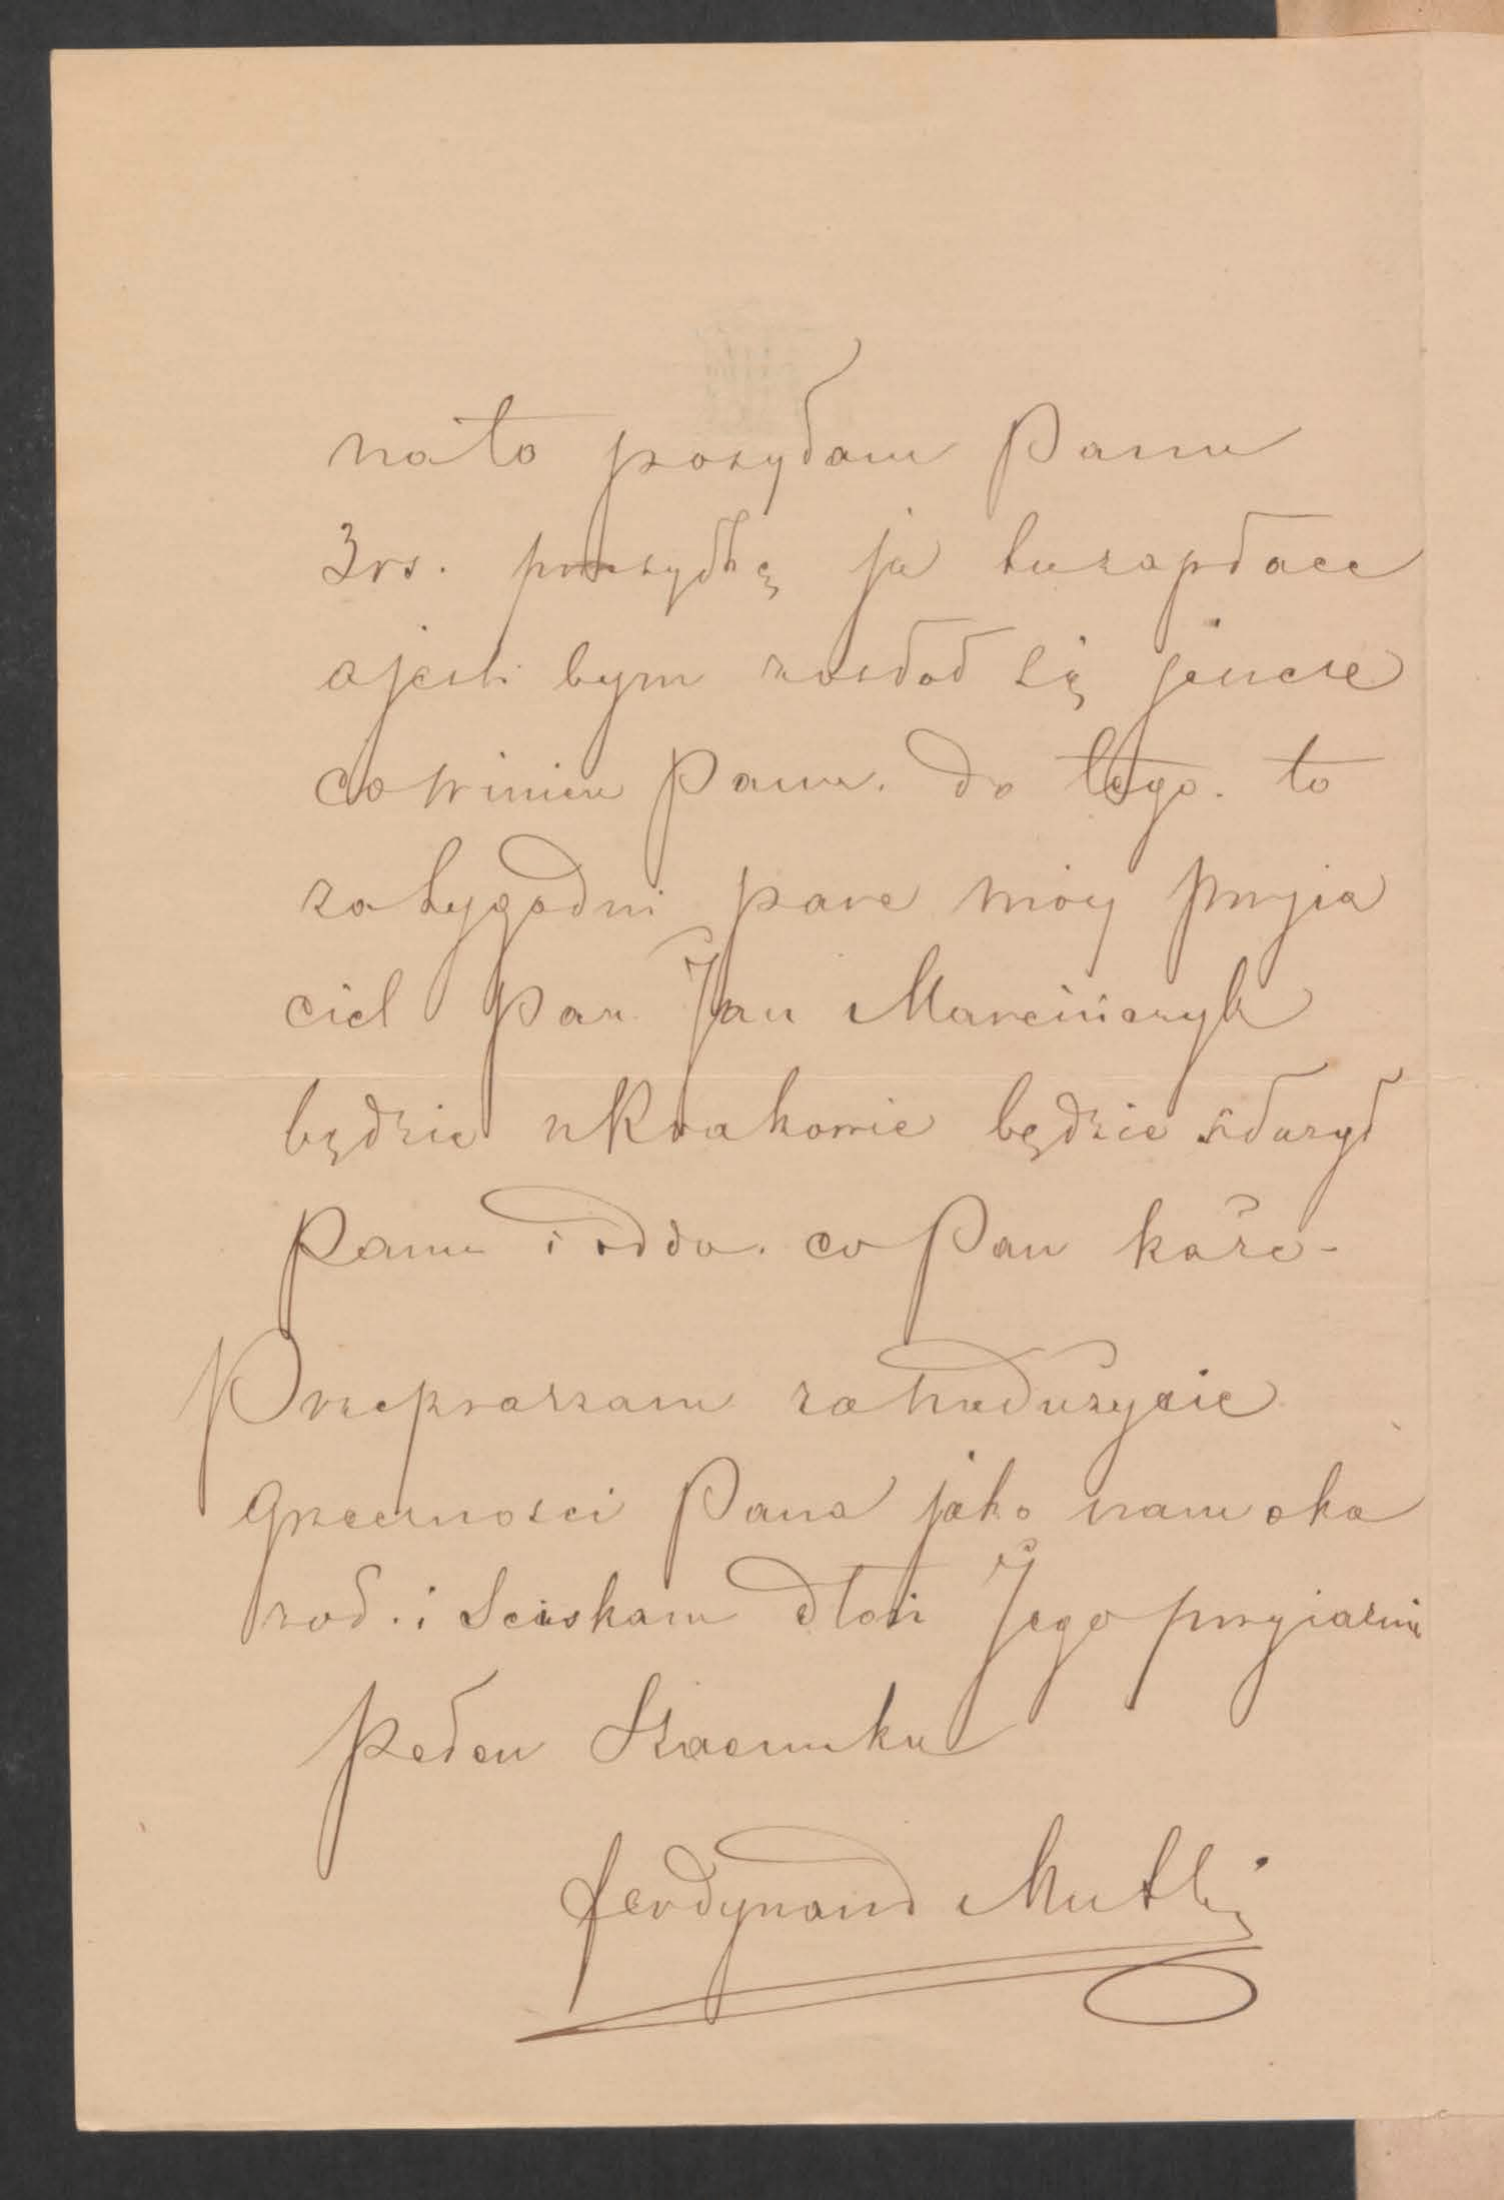 na to posyłam Panu
3 rs. przesyłkę ja tu zapłacę
a jesli bym został się jescze
co winien Panu. do tego. to
za tygodni pare móy przyia
ciel Pan Jan Marcińczyk
będzie w Krakowie będzie służył
Panu i odda. co Pan każe -
Przepraszam za naduzycie
Grzecznosci Pana jako nam oka
zał. i Sciskam dłoń Jego przyiaznie
pełen Szacunku
Ferdynand